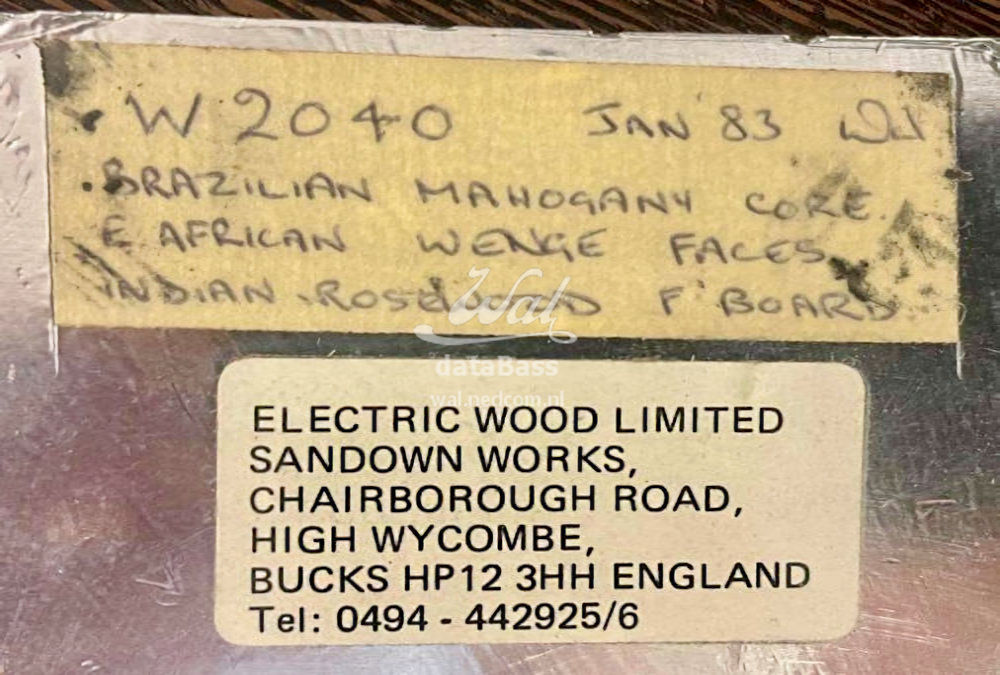 W2040 JAN '83
BRAZILIAN MAHOGANY CORE.
E AFRICAN WENGE FACES
INDIAN ROSEWOOD F'BOARD
Wal
dataBass
wal.nedcom.nl
ELECTRIC WOOD LIMITED
SANDOWN WORKS,
CHAIRBOROUGH ROAD,
HIGH WYCOMBE,
BUCKS HP12 3HH ENGLAND
Tel: 0494 - 442925/6